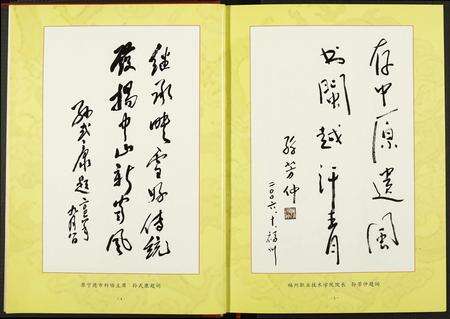 继承映雪好传统
發揚中山新家风
孙式康题
原宁德市科协主席 孙式康题词
存中原遗风
书闽越汗青
孙芳仲
二〇〇六.十.福州
福州职业技术学院院长 孙芳仲题词